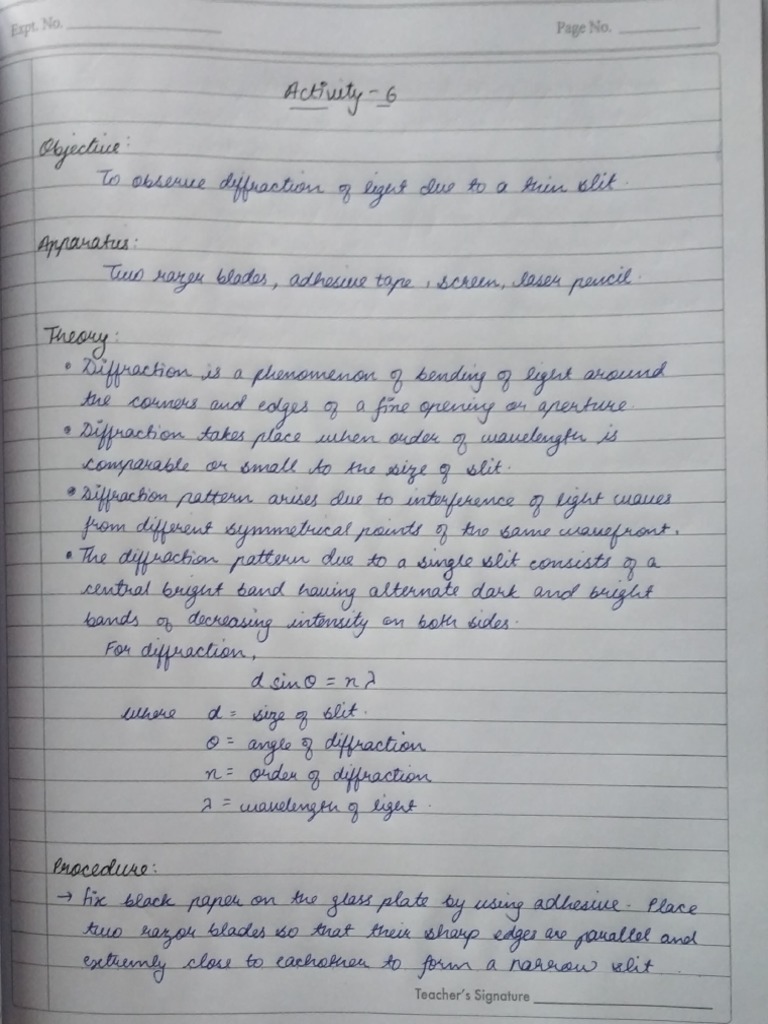 Expt. No.
Page No.
Activity - 6
Objective:
To observe diffraction of light due to a thin slit.
Apparatus:
Two razer blades, adhesive tape, screen, laser pencil.
Theory:
• Diffraction is a phenomenon of bending of light around
the corners and edges of a fine opening or aperture.
• Diffraction takes place when order of wavelength is
comparable or small to the size of slit.
• Diffraction pattern arises due to interference of light waves
from different symmetrical points of the same wavefront.
• The diffraction pattern due to a single slit consists of a
central bright band having alternate dark and bright
bands of decreasing intensity on both sides.
For diffraction,
d sin θ = n λ
where d = size of slit.
θ = angle of diffraction
n = order of diffraction
λ = wavelength of light.
Procedure:
→ Fix black paper on the glass plate by using adhesive. Place
two razor blades so that their sharp edges are parallel and
extremly close to eachother to form a narrow slit
Teacher's Signature